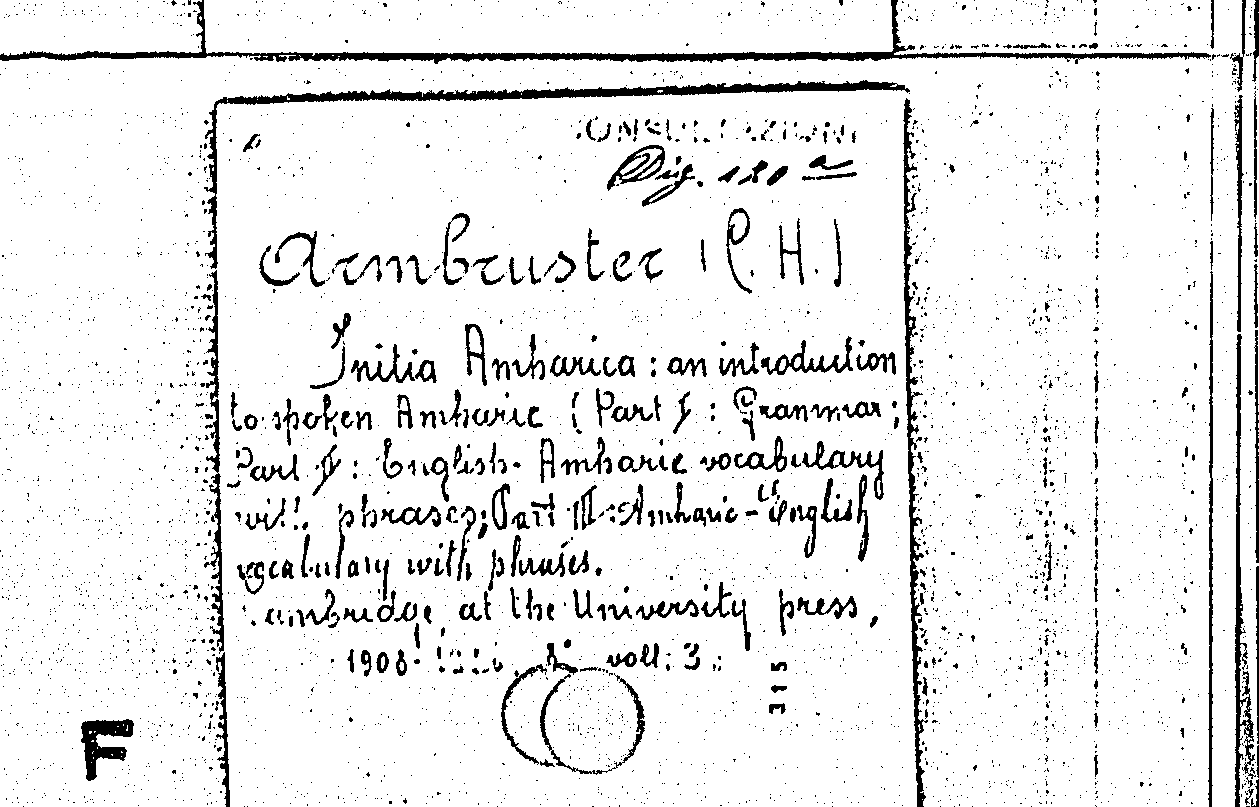 CONSULTAZIONE
Diz. 120 a
Armbruster (C. H.)
Initia Amharica : an introduction
to spoken Amharic ( Part I : Grammar;
Part I : English-Amharic vocabulary
with phrases; Part III : Amharic-English
vocabulary with phrases.
Cambridge, at the University press,
1908- 8° voll: 3.
315
F